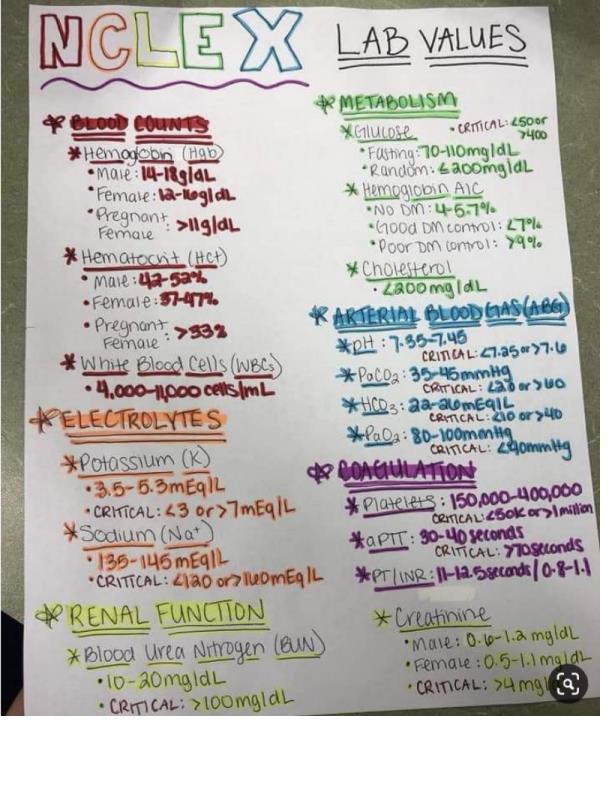 NCLEX LAB VALUES
* BLOOD COUNTS
* Hemoglobin (Hgb)
• Male: 14-18g/dL
• Female: 12-16g/dL
• Pregnant Female: >11g/dL
* Hematocrit (Hct)
• Male: 42-52%
• Female: 37-47%
• Pregnant Female: >33%
* White Blood Cells (WBCs)
• 4,000-11,000 cells/mL
* ELECTROLYTES
* Potassium (K)
• 3.5-5.3mEq/L
• CRITICAL: <3 or >7mEq/L
* Sodium (Na+)
• 135-145mEq/L
• CRITICAL: <120 or >160mEq/L
* RENAL FUNCTION
* Blood Urea Nitrogen (BUN)
• 10-20mg/dL
• CRITICAL: >100mg/dL
* METABOLISM
* Glucose • CRITICAL: <50 or >400
• Fasting: 70-110mg/dL
• Random: ≤200mg/dL
* Hemoglobin A1C
• No DM: 4-5.7%
• Good DM control: <7%
• Poor DM control: >9%
* Cholesterol
• <200mg/dL
* ARTERIAL BLOOD GAS (ABG)
* pH: 7.35-7.45
CRITICAL: <7.25 or >7.6
* PaCO2: 35-45mmHg
CRITICAL: <20 or >60
* HCO3: 22-26mEq/L
CRITICAL: <10 or >40
* PaO2: 80-100mmHg
CRITICAL: <40mmHg
* COAGULATION
* Platelets: 150,000-400,000
CRITICAL: <50K or >1million
* aPTT: 30-40 seconds
CRITICAL: >70seconds
* PT/INR: 11-12.5seconds/0.8-1.1
* Creatinine
• Male: 0.6-1.2 mg/dL
• Female: 0.5-1.1 mg/dL
• CRITICAL: >4 mg/